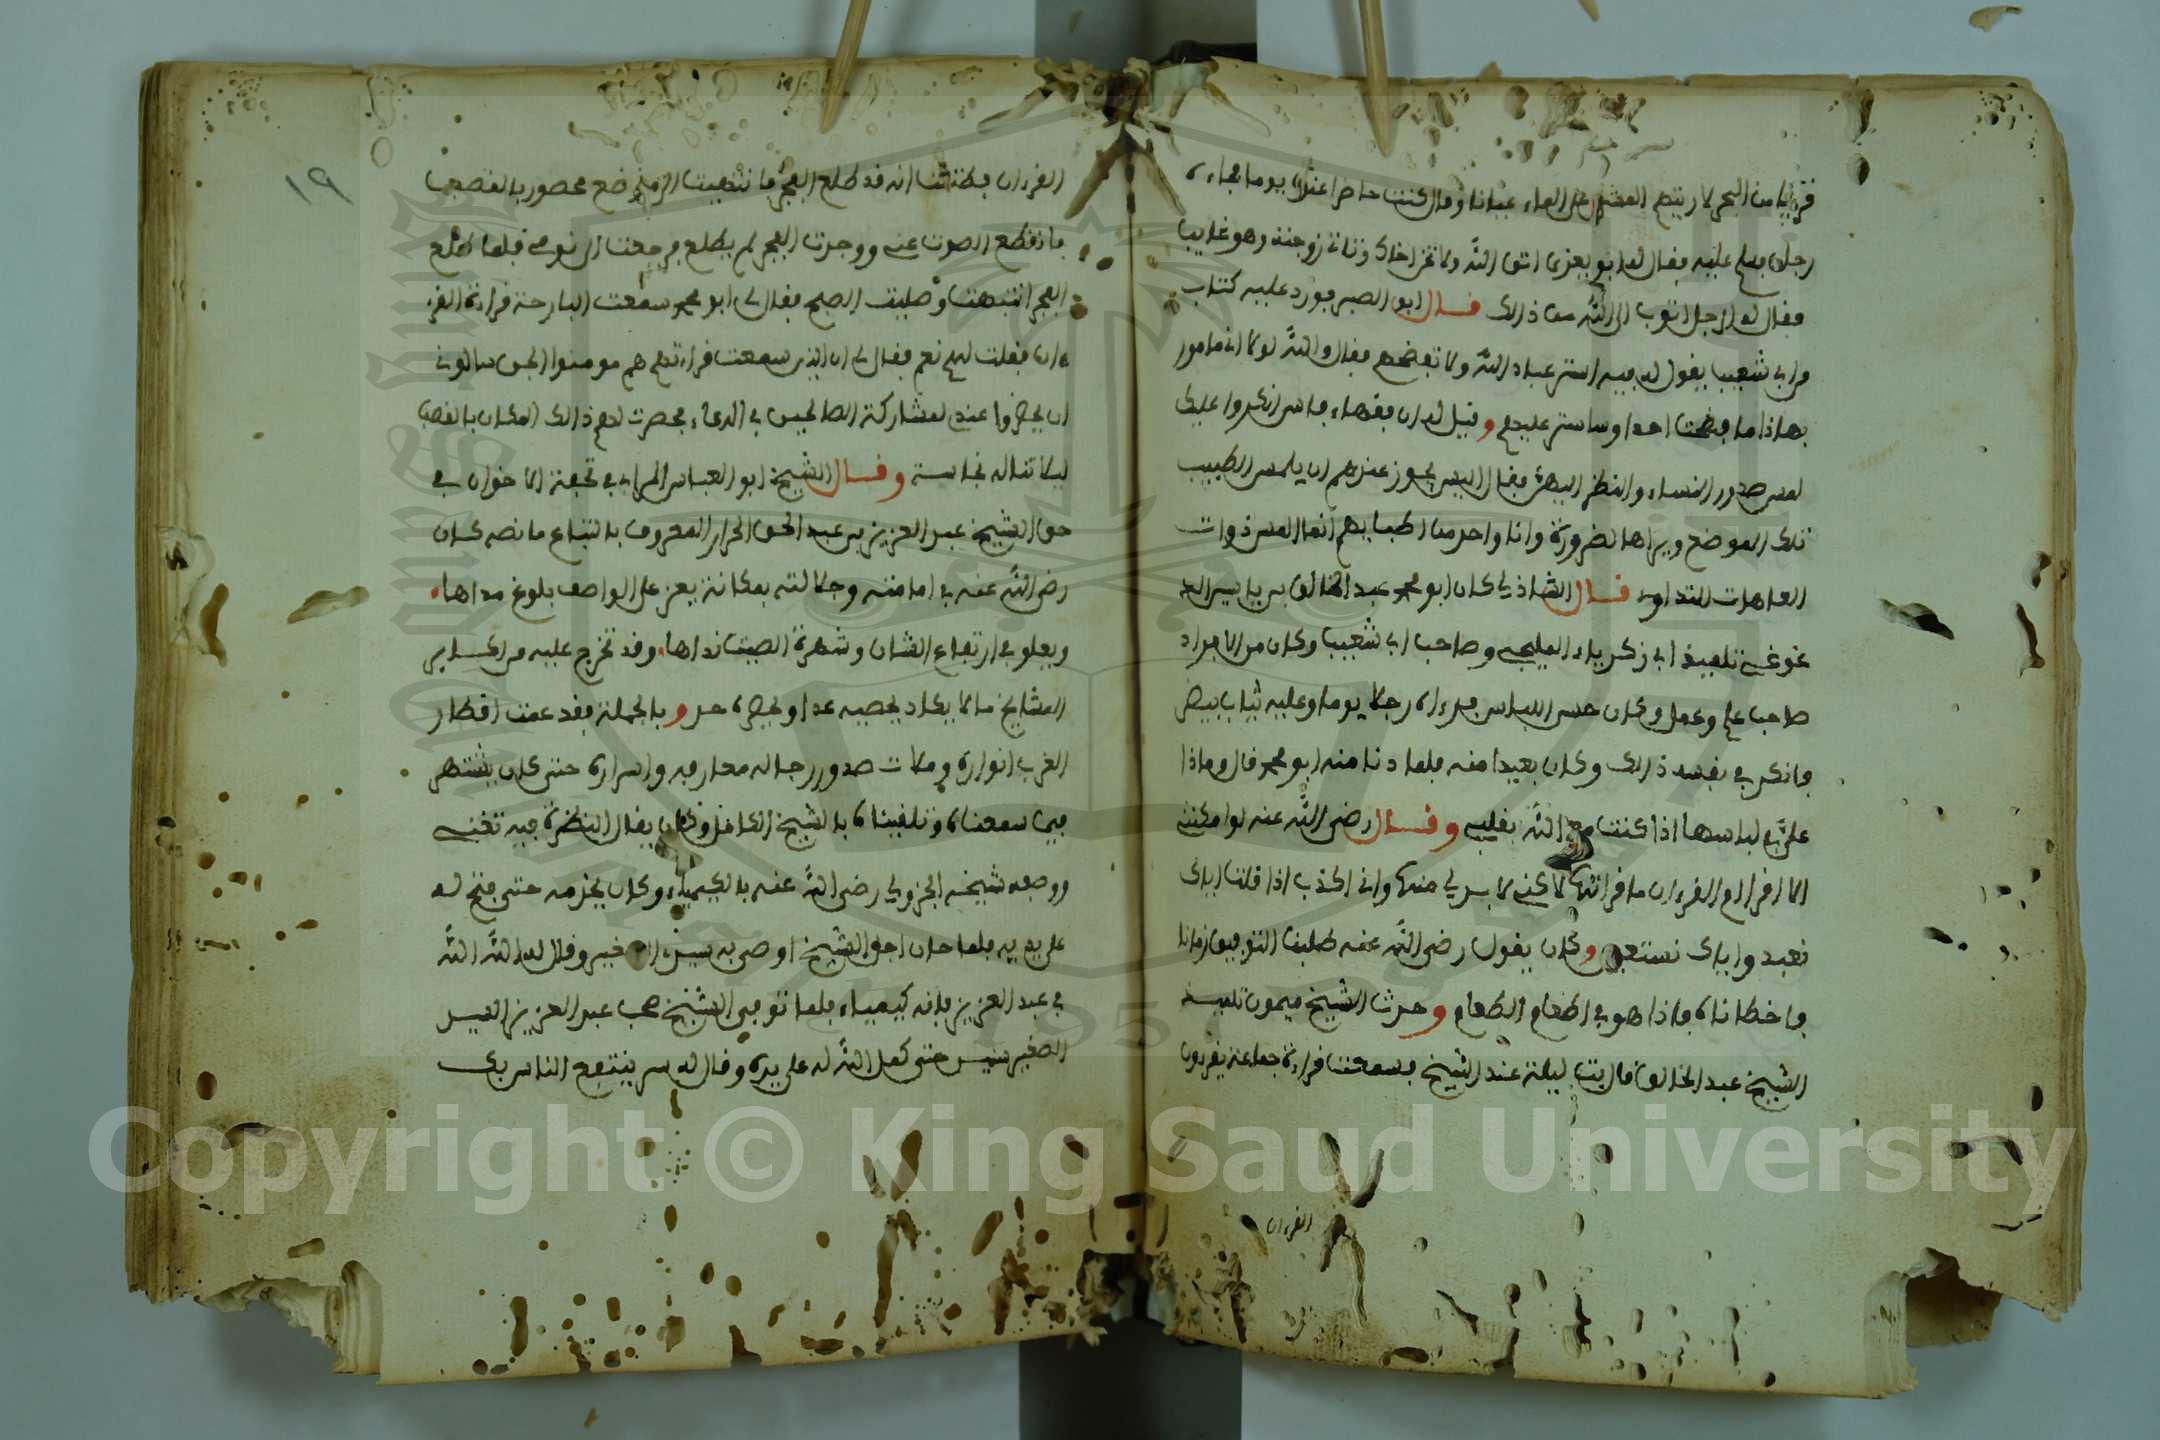 قريبا من البحر لا ريتهم المشي على الماء عيانا وقال كنت حاضرا عنده يوما فجاءه
رجل فسلم عليه فقال له ابو يعزى اتق الله ولا تخن اخاك وزناته زوجته وهو غايب
فقال له الرجل اتوب الى الله من ذالك قال ابو الصبر فورد عليه كتاب
من ابي شعيب يقول له فيه استر عباد الله ولا تفضحهم فقال والله لولا اني مامور
بهاذا ما فضحت احدا وساستر عليهم وقيل له ان فقهاء فاس انكروا عليك
لمس صدور النساء والنظر اليهن فقال اليس يجوز عندهم ان يلمس الطبيب
تلك المواضع ويراها لضرورة وانا واحد من اطبايهم انما المس ذوات
العاهات للتداوي قال الشاذلي كان ابو محمد عبد الخالق بن ياسين الد
غوغي تلميذ ابي زكرياء المليجي وصاحب ابي شعيب وكان من الافراد
صاحب علم وعمل وكان حسن اللباس فرءاه رجلا يوما وعليه ثياب بيض
فانكر في نفسه ذالك وكان بعيدا منه فلما دنا منه ابو محمد قال وماذا
علي في لباسها اذا كنت مع الله بقلبي وقال رضي الله عنه لو امكنني
الا اقرا ام القرءان ما قراتها لاكني لا بد لي منها واني اكذب اذا قلت اياك
نعبد واياك نستعين وكان يقول رضي الله عنه طلبنا التوفيق زمانا
فاخطاناه فاذا هو في اطعام الطعام وحدث الشيخ ميمون تلميذ
الشيخ عبد الخالق قال بت ليلة عند الشيخ فسمعت قراءة جماعة يقرءون
القرءان
١٩
القرءان فظننت انه قد طلع الفجر فانتهيت الى موضع محصور بالقصب
فانقطع الصوت عني ووجدت الفجر لم يطلع فرجعت الى نومي فلما طلع
الفجر انتبهت وصليت الصبح فقال لي ابو محمد سمعت البارحة قراءة القر
ءان فقلت له نعم فقال لي ان الذين سمعت قراءتهم هم مومنوا الجن سالوني
ان يحضروا عندي لمشاركة الصالحين في الدعاء فحصرت لهم ذالك المكان بالقصب
ليلا تناله نجاسة وقال الشيخ ابو العباس المرابي في تحفة الاخوان في
حق الشيخ عبد العزيز بن عبد الحق الحرار المعروف بالتباع ما نصه كان
رضي الله عنه في امامته وجلالته بمكانة يعز على الواصف بلوغ مداها
ويعلو في ارتفاع الشان وشهرة الصيت نداها وقد تخرج عليه من اكابر
المشايخ ما لا يكاد يحصيه عد او يحصره حد وبالجملة فقد عمت اقطار
الغرب انواره وملات صدور رجاله معارفه واسراره حتى كان يشتهر
فيما سمعناه وتلقيناه بالشيخ الكامل وكان يقال النظرة فيه تغني
ووصفه شيخه الجزولي رضي الله عنه بالكيمياء وكان يخدمه حتى فتح له
على يديه فلما حان اجل الشيخ اوصى به سيدي الصغير وقال له الله الله
في عبد العزيز فانه كيمياء فلما توفي الشيخ صحب عبد العزيز السيد
الصغير حتى كمل الله له على يده وقال له سر ينتفع الناس بك
Copyright © King Saud University
1957